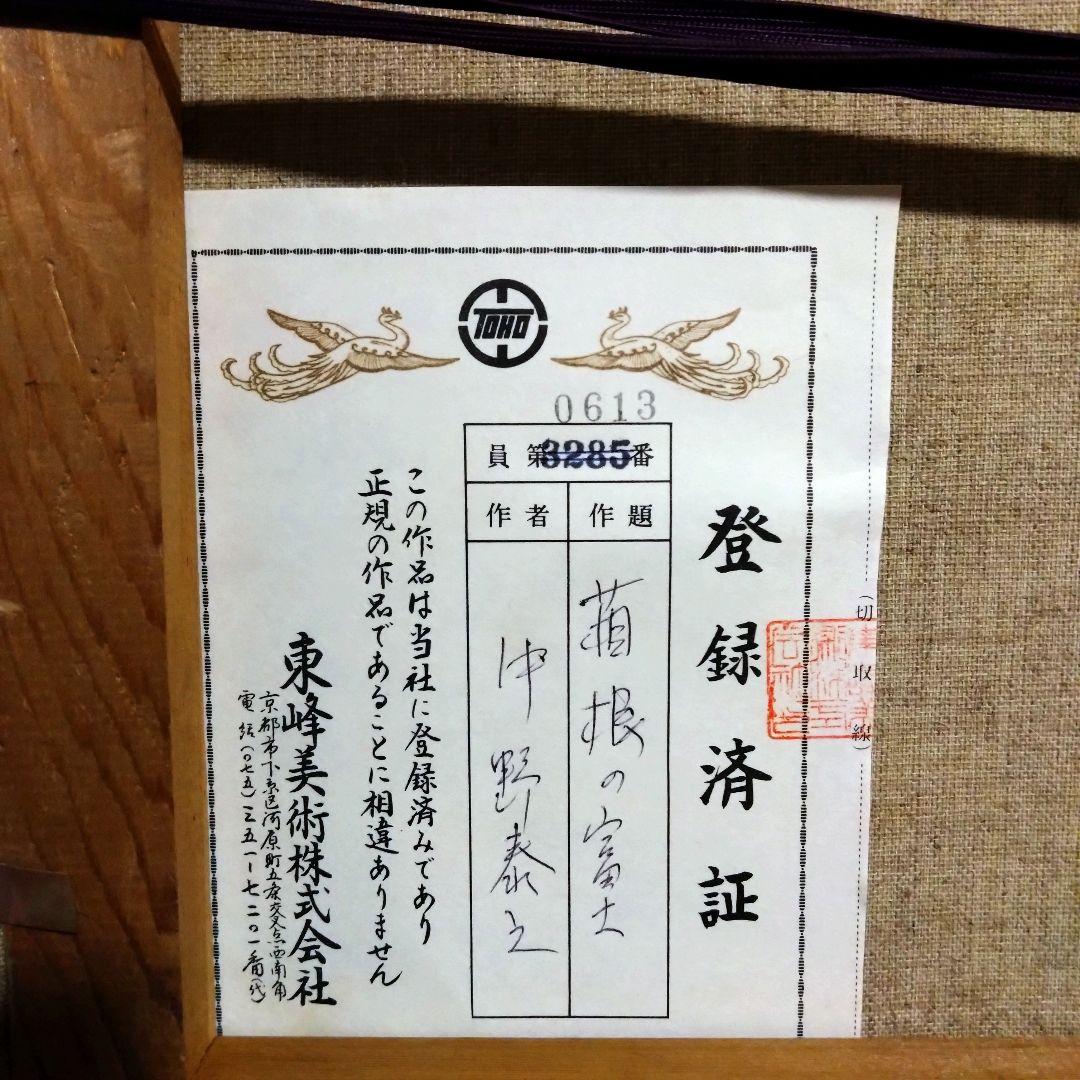 TOHO
0613
員第3285番
登録済証
(切取線)
作題
箱根の富士
作者
中野泰之
この作品は当社に登録済みであり
正規の作品であることに相違ありません
東峰美術株式会社
京都市下京区河原町五条交叉点西南角
電話(〇七五)三五一-七二〇一番(代)